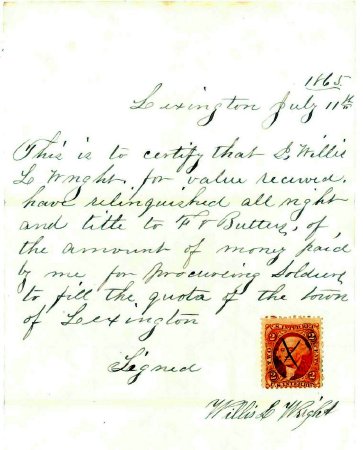 1865.
Lexington July 11th
This is to certify that I, Willis
L Wright, for value received.
have relinquished all right
and title to F V Butters, of,
the amount of money paid
by me for procureing Soldiers
to fill the quota of the town
of Lexington
Signed
Willis L Wright